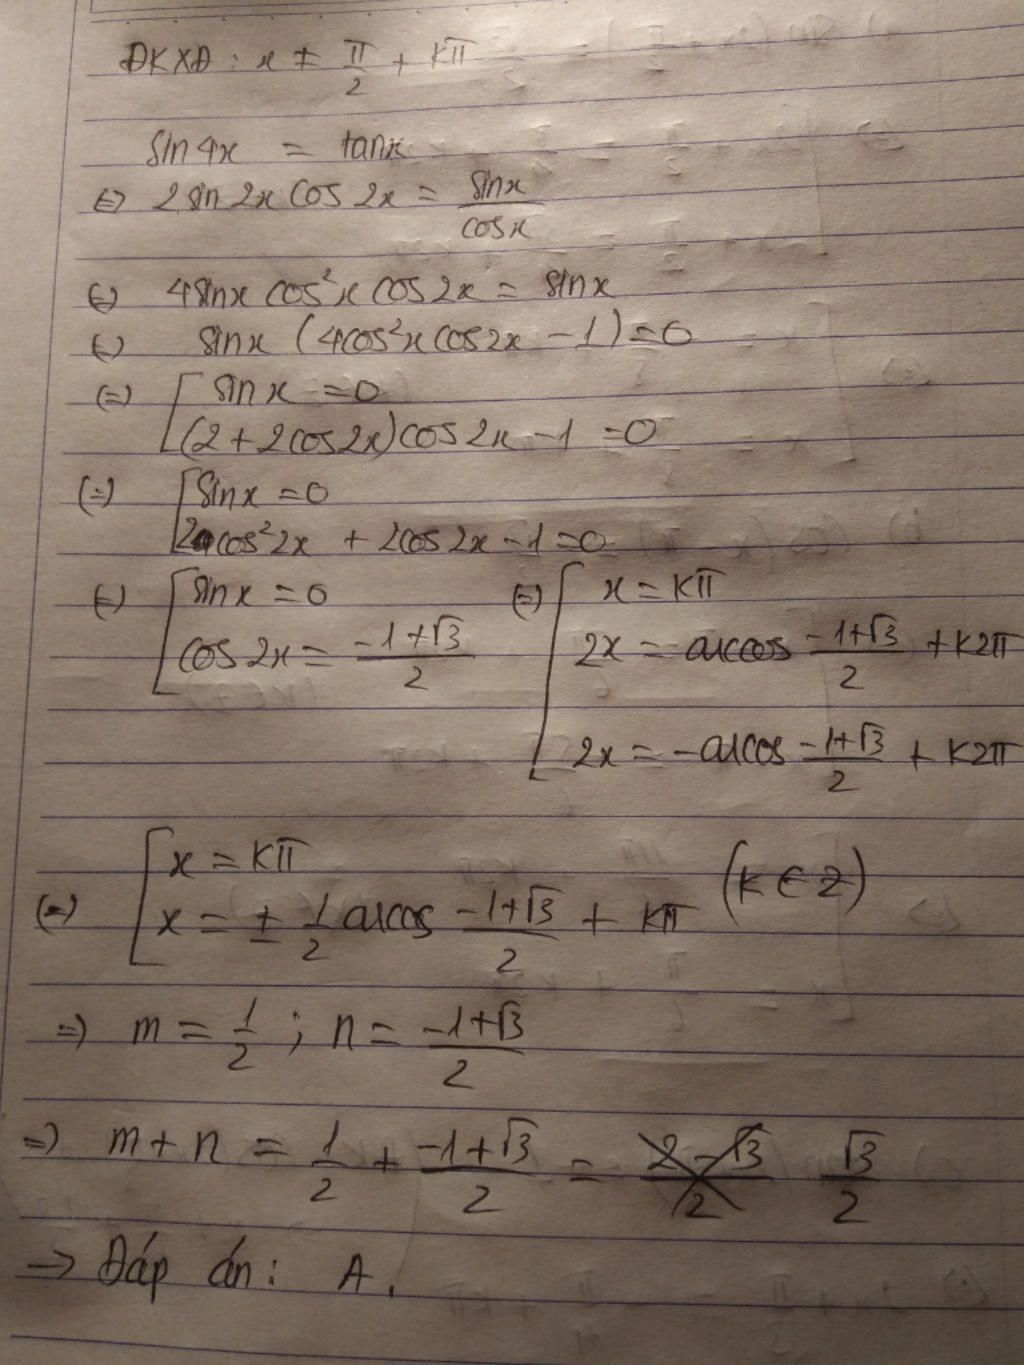 ĐKXĐ : x ≠ π/2 + kπ
sin4x = tanx
⇔ 2sin2x cos2x = sinx/cosx
⇔ 4sinx cos²x cos2x = sinx
⇔ sinx (4cos²x cos2x - 1) = 0
⇔ [ sinx = 0
(2 + 2cos2x)cos2x - 1 = 0
⇔ [ sinx = 0
2cos²2x + 2cos2x - 1 = 0
⇔ [ sinx = 0 ⇔ [ x = kπ
cos2x = (-1+√3)/2 2x = arccos (-1+√3)/2 + k2π
2x = -arccos (-1+√3)/2 + k2π
⇔ [ x = kπ (k ∈ Z)
x = ± 1/2 arccos (-1+√3)/2 + kπ
⇒ m = 1/2 ; n = (-1+√3)/2
⇒ m + n = 1/2 + (-1+√3)/2 = √3/2
→ Đáp án : A.